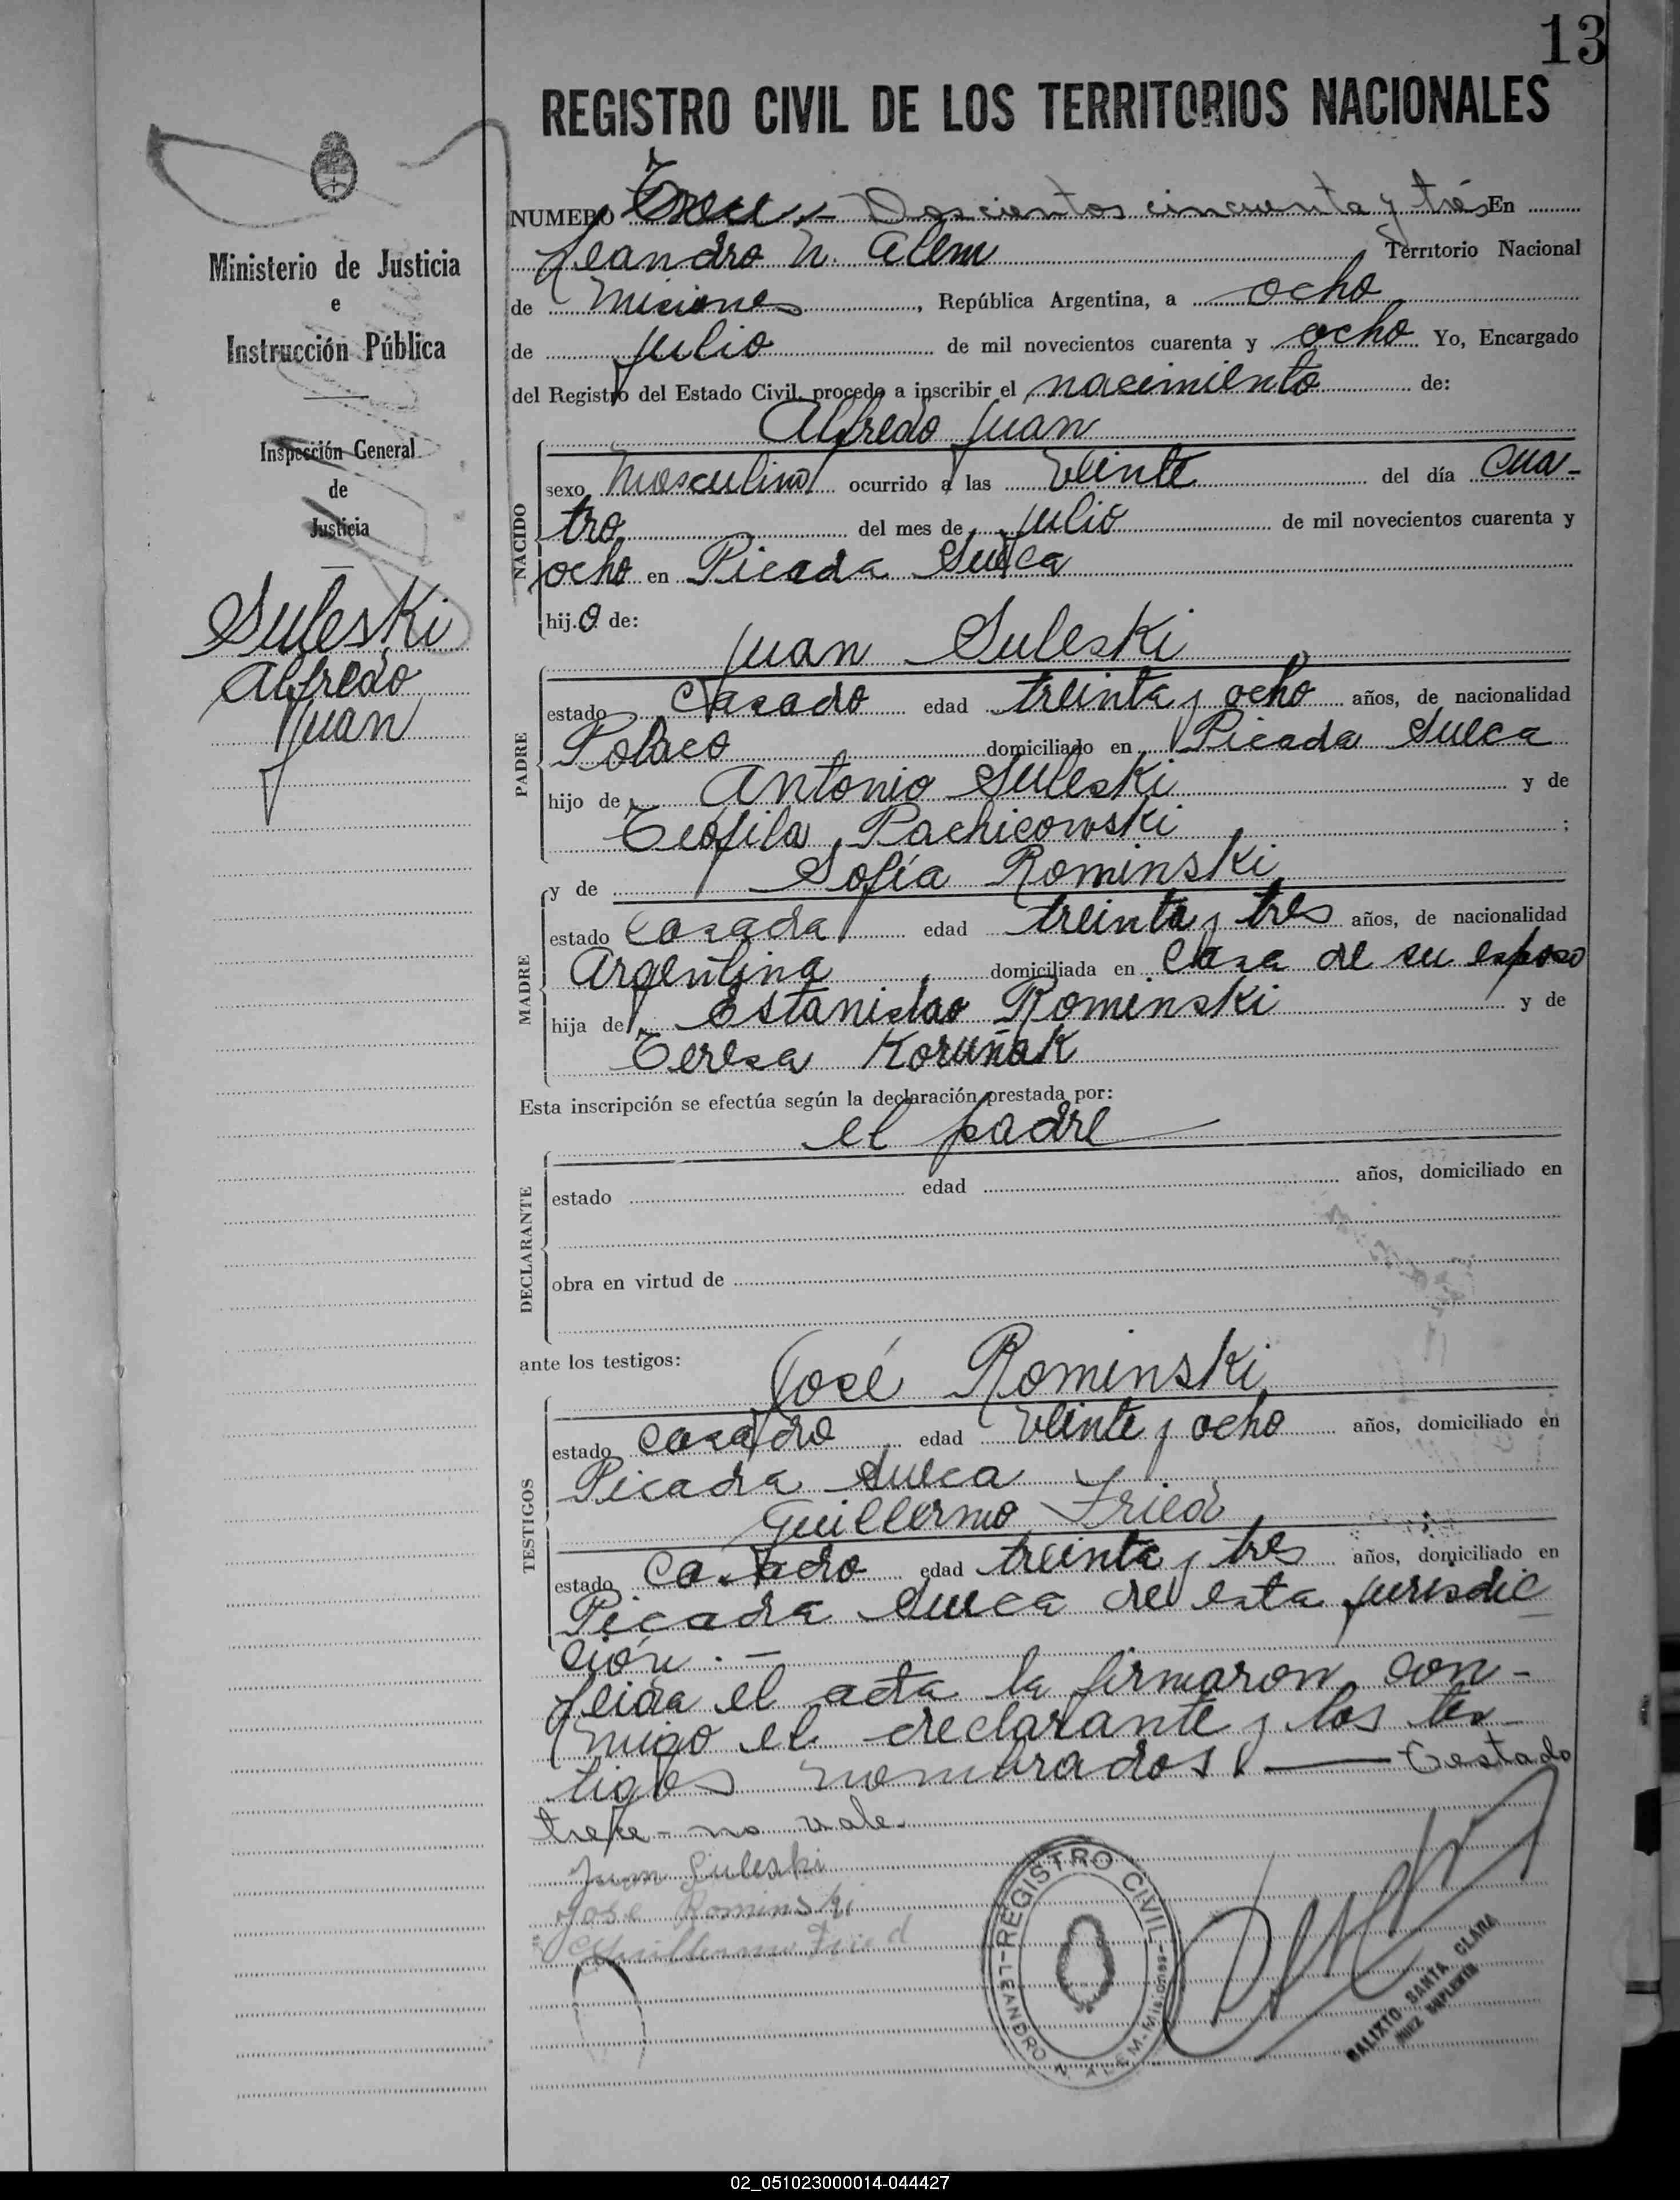 13
REGISTRO CIVIL DE LOS TERRITORIOS NACIONALES
NUMERO Trece.- Doscientos cincuenta y trés En
Leandro N. Alem Territorio Nacional
de Misiones, República Argentina, a ocho
de julio de mil novecientos cuarenta y ocho Yo, Encargado
del Registro del Estado Civil, procedo a inscribir el nacimiento de:
Alfredo Juan
NACIDO
sexo Masculino ocurrido a las veinte del día cua-
tro del mes de julio de mil novecientos cuarenta y
ocho en Picada Sueca
hijo de:
Juan Suleski
PADRE
estado Casado edad treinta y ocho años, de nacionalidad
Polaco domiciliado en Picada Sueca
hijo de Antonio Suleski y de
Teófila Pachicowski ;
y de Sofía Rominski
MADRE
estado casada edad treinta y tres años, de nacionalidad
Argentina domiciliada en casa de su esposo
hija de Estanislao Rominski y de
Teresa Koruñak
Esta inscripción se efectúa según la declaración prestada por:
el padre
DECLARANTE
estado edad años, domiciliado en
obra en virtud de
ante los testigos:
José Rominski
TESTIGOS
estado casado edad veinte y ocho años, domiciliado en
Picada Sueca
Guillermo Fried
estado Casado edad treinta y tres años, domiciliado en
Picada Sueca de esta jurisdic
ción.-
Leida el acta la firmaron con-
migo el declarante y los tes-
tigos nombrados. — Testado
trece - no vale.
Juan Suleski
José Rominski
Guillermo Fried
REGISTRO CIVIL
LEANDRO N. ALEM - Misiones
CALIXTO SANTA CLARA
JUEZ SUPLENTE
Ministerio de Justicia
e
Instrucción Pública
Inspección General
de
Justicia
Suleski
Alfredo
Juan
02_051023000014-044427